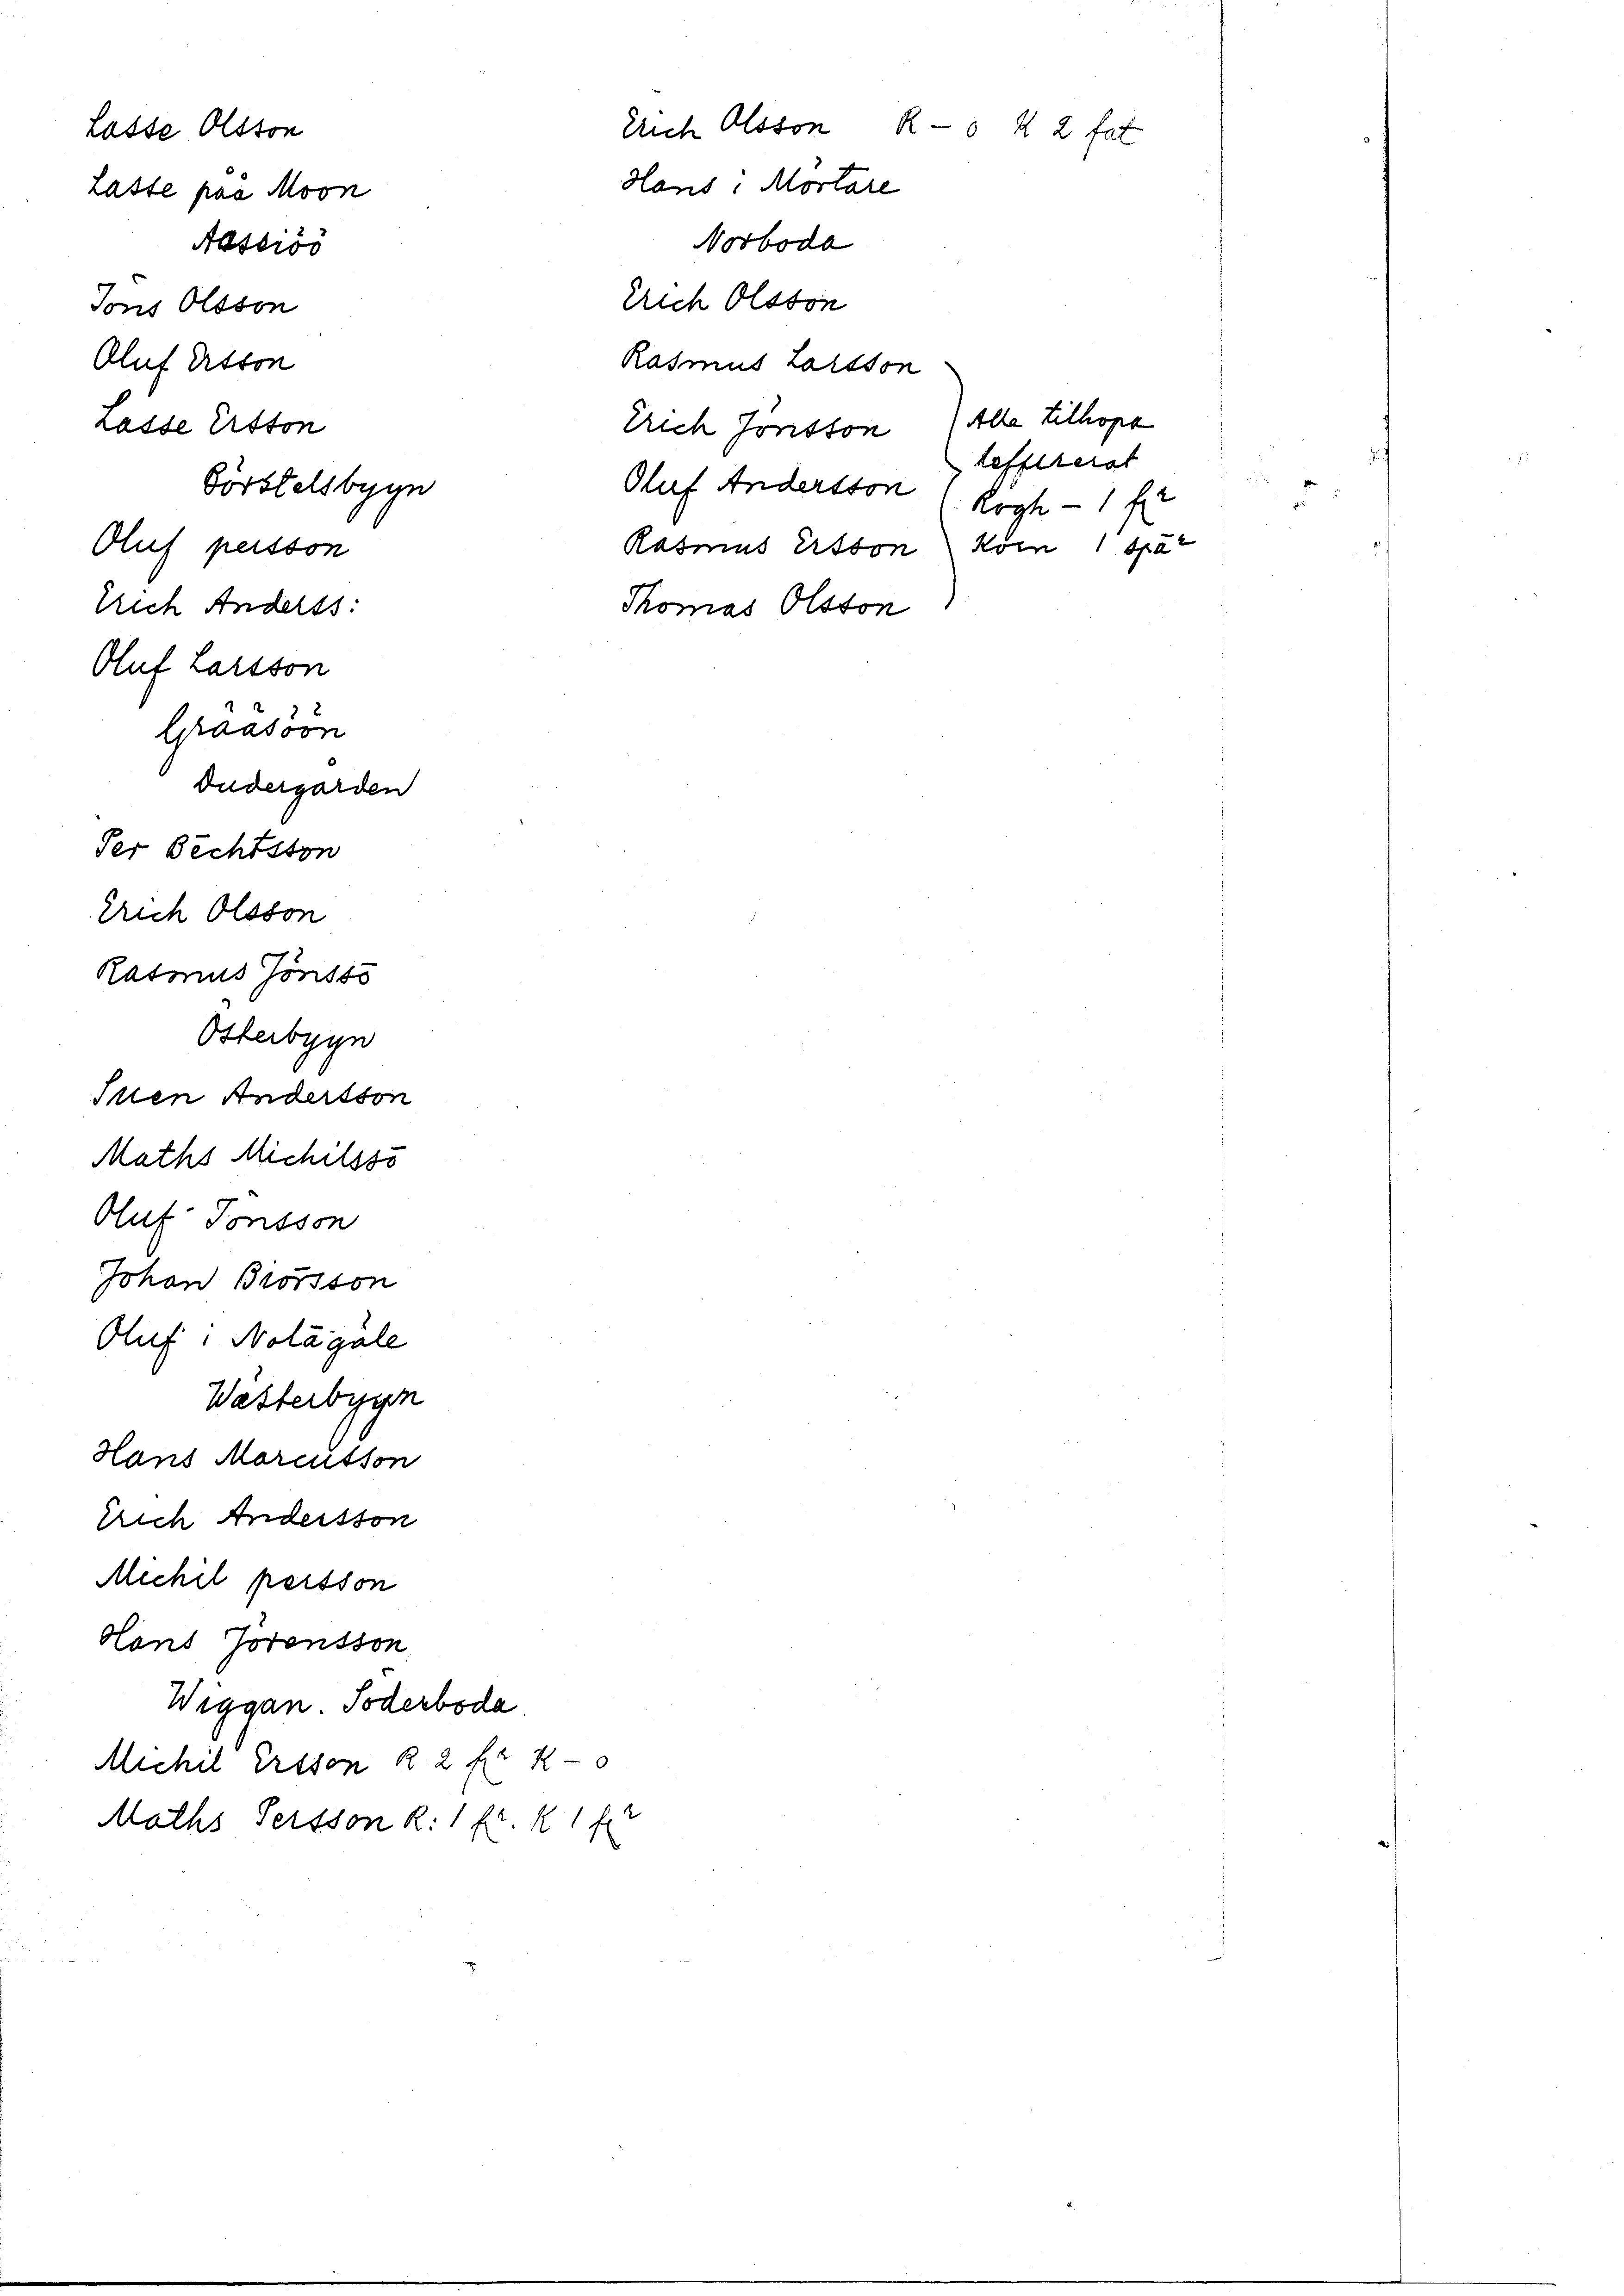 Lasse Olsson
Lasse påå Moon
Aassiöö
Jöns Olsson
Oluf Ersson
Lasse Ersson
Börstelsbyyn
Oluf persson
Erich Anderss:
Oluf Larsson
Gräåsöön
Dudergården
Per Bēchtsson
Erich Olsson
Rasmus Jönssō
Österbyyn
Suen Andersson
Maths Michilssō
Oluf Jönsson
Johan Biörsson
Oluf i Notāgäle
Wästerbyyn
Hans Marcusson
Erich Andersson
Michil persson
Hans Jörensson
Wiggan. Söderboda.
Michil Ersson R. 2 fr K – 0
Maths Persson R: 1 fr. K 1 fr
Erich Olsson R – 0 K 2 fat
Hans i Mörtare
Norboda
Erich Olsson
Rasmus Larsson
Erich Jönsson
Oluf Andersson
Rasmus Ersson
Thomas Olsson
Alle tilhopa
leffrerat
Rogh – 1 fr
Korn 1 spār